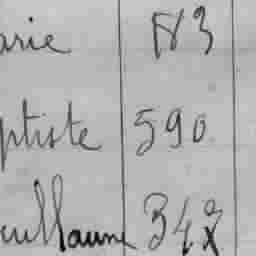 arie 183
ptiste 590
uillaume 342